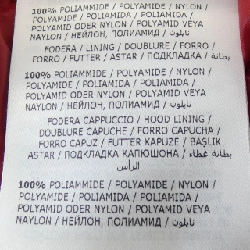 100% POLIAMMIDE / POLYAMIDE / NYLON /
POLYAMIDE / POLIAMIDA / POLIAMIDA /
POLYAMID ODER NYLON / POLYAMID VEYA
NAYLON / НЕЙЛОН, ПОЛИАМИД / نايلون
FODERA / LINING / DOUBLURE / FORRO /
FORRO / FUTTER / ASTAR / ПОДКЛАДКА / بطانة
100% POLIAMMIDE / POLYAMIDE / NYLON /
POLYAMIDE / POLIAMIDA / POLIAMIDA /
POLYAMID ODER NYLON / POLYAMID VEYA
NAYLON / НЕЙЛОН, ПОЛИАМИД / نايلون
FODERA CAPPUCCIO / HOOD LINING /
DOUBLURE CAPUCHE / FORRO CAPUCHA /
FORRO CAPUZ / FUTTER KAPUZE / BAŞLIK
ASTARI / ПОДКЛАДКА КАПЮШОНА / بطانة غطاء
الرأس
100% POLIAMMIDE / POLYAMIDE / NYLON /
POLYAMIDE / POLIAMIDA / POLIAMIDA /
POLYAMID ODER NYLON / POLYAMID VEYA
NAYLON / НЕЙЛОН, ПОЛИАМИД / نايلون